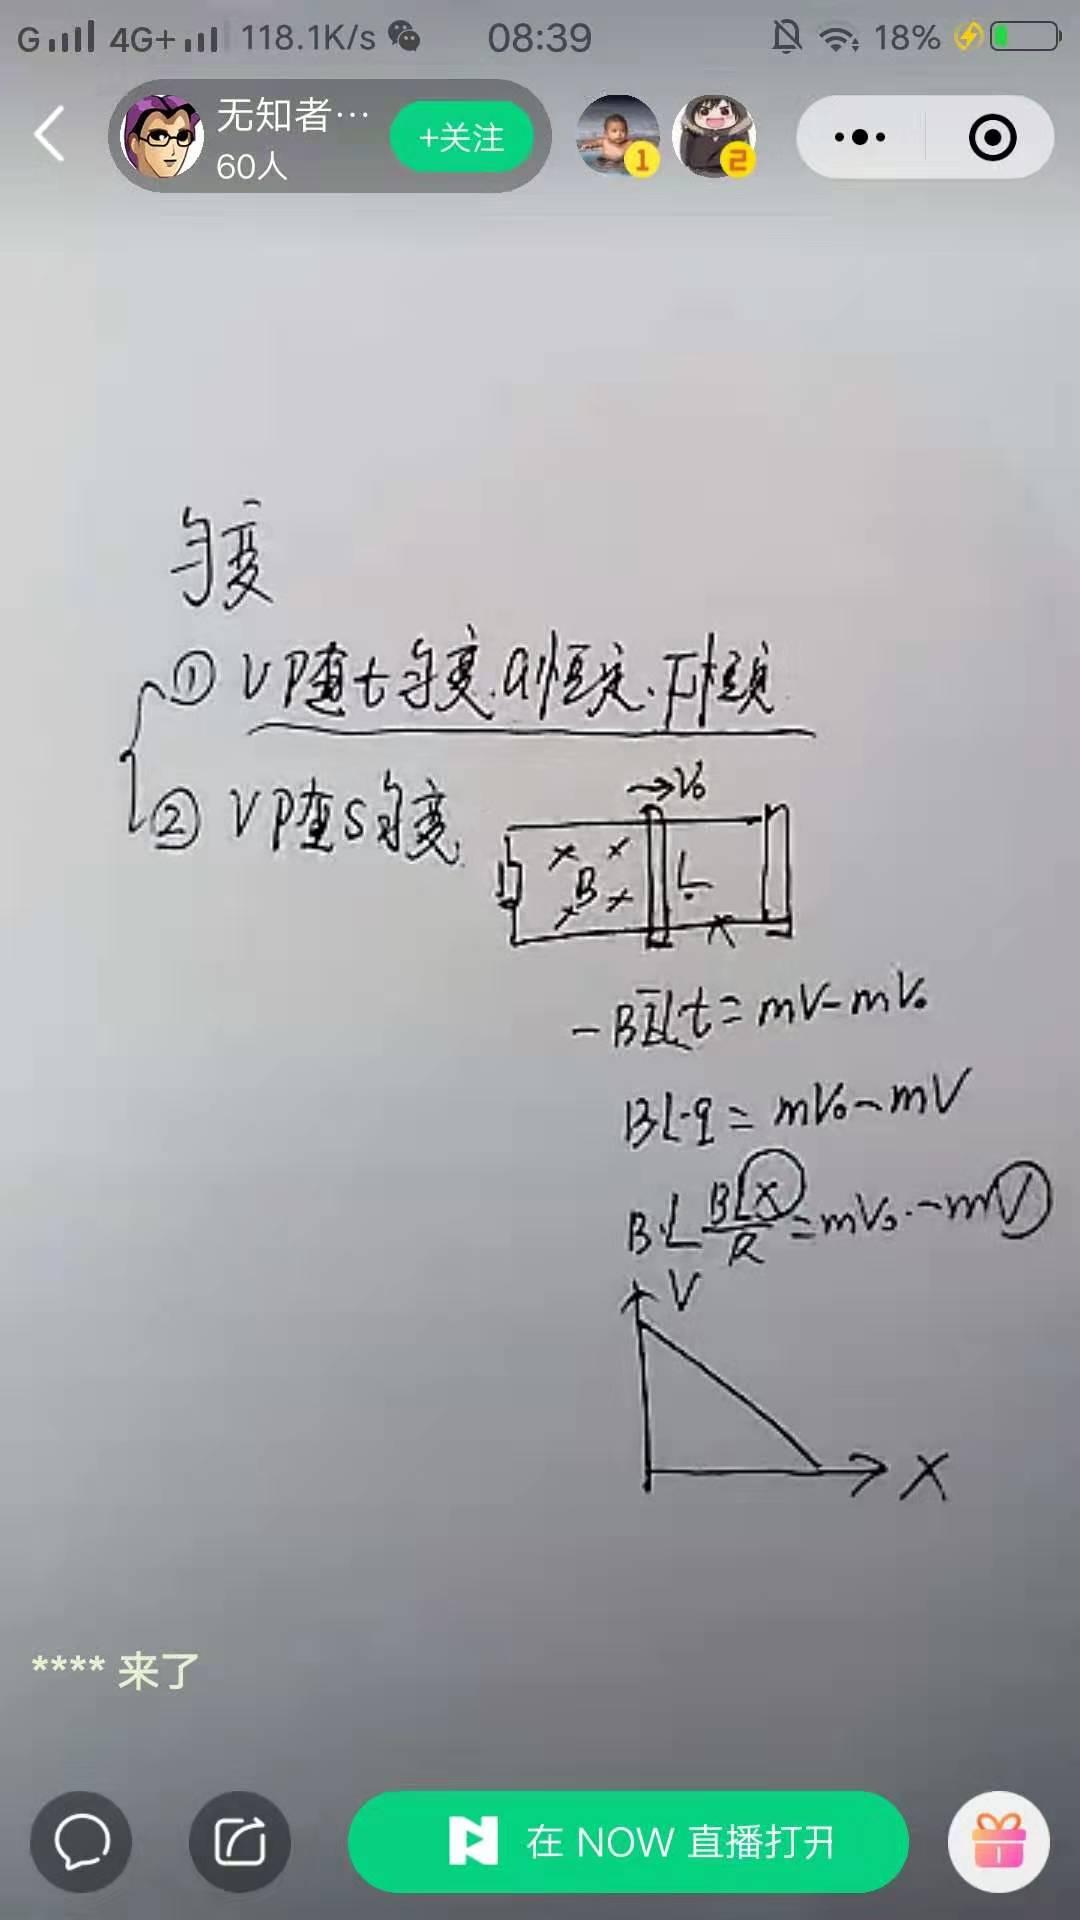 G 4G+ 118.1K/s 08:39 18%
无知者… +关注
60人
1 2
匀变
① V随t匀变.a恒定、F恒定
② V随S匀变
→V₀
B L
x
-BĪLt=mV-mV₀
BL·q=mV₀-mV
B·L BLX/R=mV₀-mV
V
X
**** 来了
在 NOW 直播打开